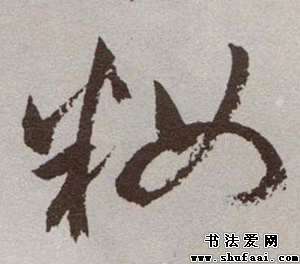 籹
书法爱网
www.shufaai.com